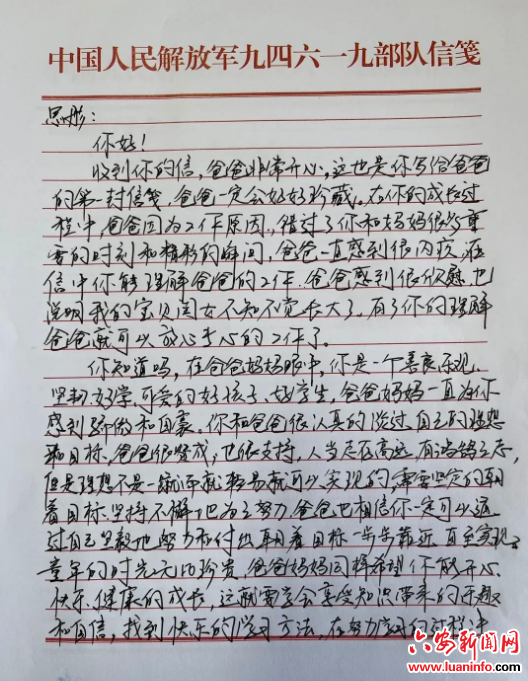 中国人民解放军九四六一九部队信笺
思彤：
你好！
收到你的信，爸爸非常开心，这也是你写给爸爸
的第一封信笺，爸爸一定会好好珍藏。在你的成长过
程中，爸爸因为工作原因，错过了你和妈妈很多重
要的时刻和精彩的瞬间，爸爸一直感到很内疚，在
信中你能理解爸爸的工作，爸爸感到很欣慰，也
说明我的宝贝闺女不知不觉长大了，有了你的理解
爸爸就可以放心专心的工作了。
你知道吗，在爸爸妈妈眼中，你是一个善良、乐观、
坚韧、好学、可爱的好孩子、好学生，爸爸妈妈一直为你
感到骄傲和自豪。你和爸爸很认真的谈过自己的理想
和目标，爸爸很赞成，也很支持，人当志存高远，有鸿鹄之志，
但是理想不是一蹴而就轻易就可以实现的，需要坚定的朝
着目标、坚持不懈地为之努力，爸爸也相信你一定可以通
过自己坚毅地努力和付出朝着目标一步步靠近，直至实现。
童年的时光无比珍贵，爸爸妈妈同样希望你能开心、
快乐、健康的成长，这就要学会享受知识带来的乐趣
和自信，找到快乐的学习方法，在努力学习的过程中
六安新闻网
www.luaninfo.com